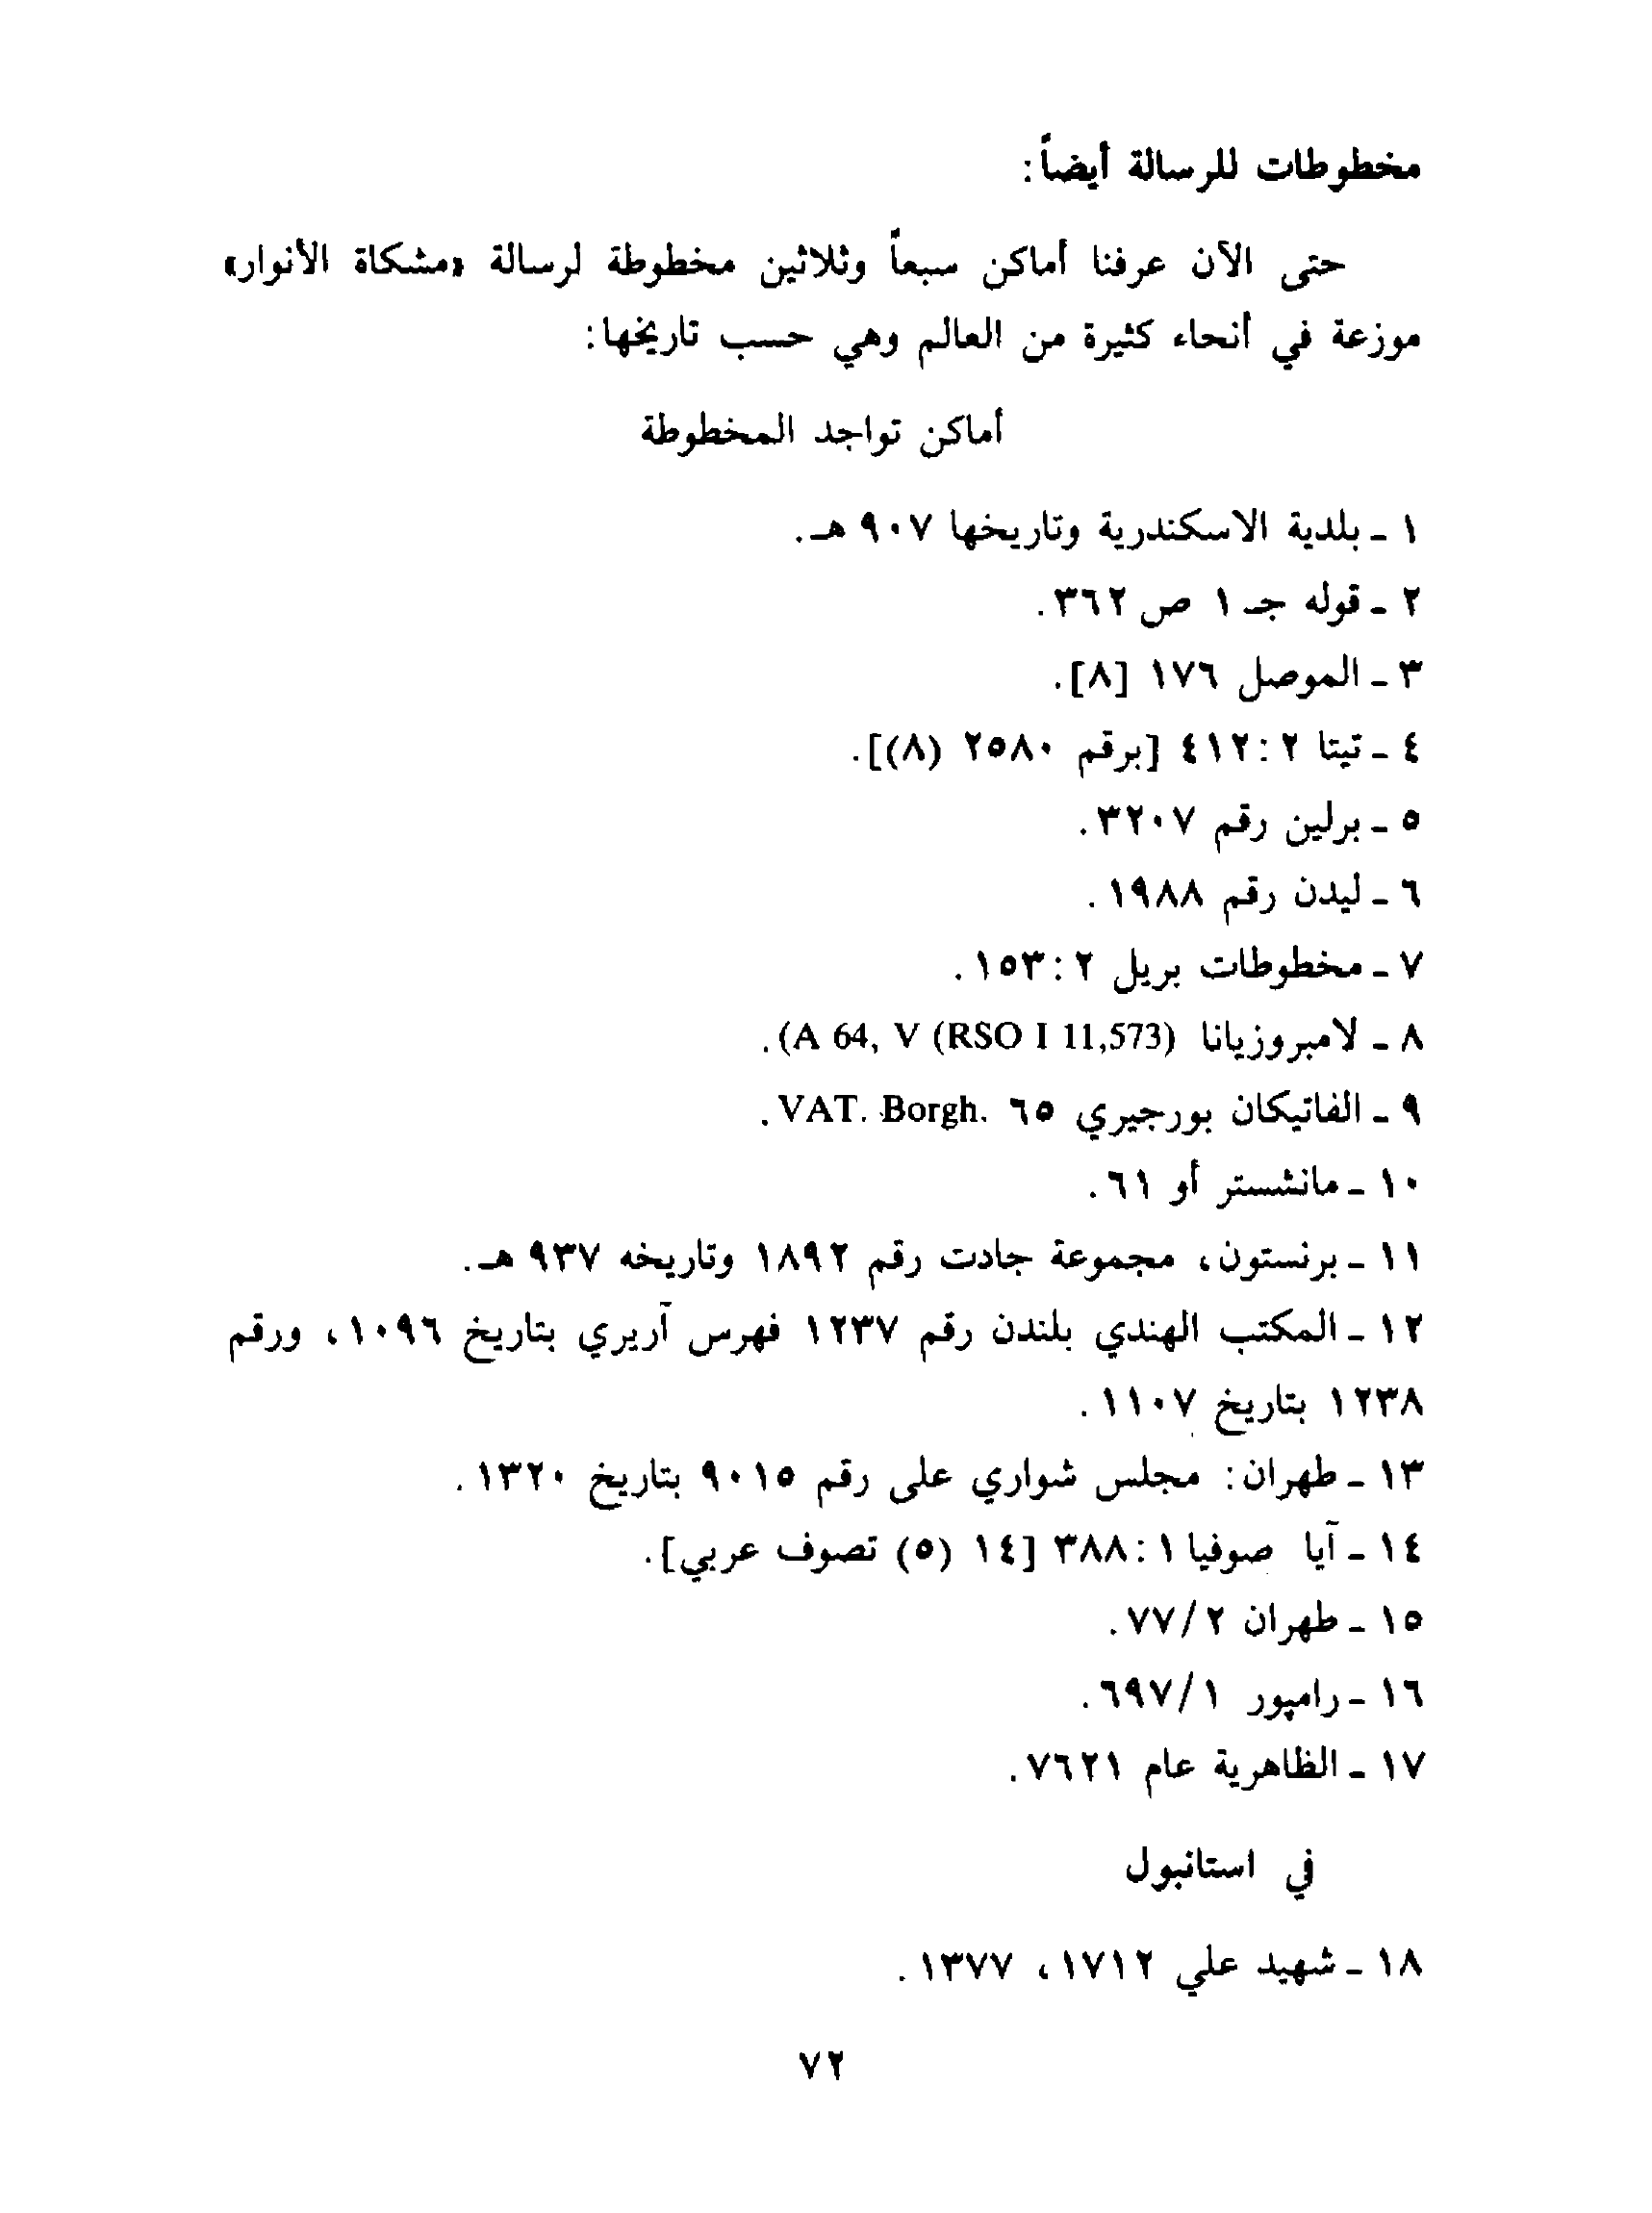 مخطوطات للرسالة أيضاً:
حتى الآن عرفنا أماكن سبعاً وثلاثين مخطوطة لرسالة «مشكاة الأنوار»
موزعة في أنحاء كثيرة من العالم وهي حسب تاريخها:
أماكن تواجد المخطوطة
١ - بلدية الاسكندرية وتاريخها ٩٠٧ هـ.
٢ - قوله جـ ١ ص ٣٦٢.
٣ - الموصل ١٧٦ [٨].
٤ - تيتا ٢ : ٤١٢ [برقم ٢٥٨٠ (٨)].
٥ - برلين رقم ٣٢٠٧.
٦ - ليدن رقم ١٩٨٨.
٧ - مخطوطات بريل ٢ : ١٥٣.
٨ - لامبروزيانا (A 64, V (RSO I 11,573).
٩ - الفاتيكان بورجيري ٦٥ VAT. Borgh.
١٠ - مانشستر أو ٦١.
١١ - برنستون، مجموعة جادت رقم ١٨٩٢ وتاريخه ٩٣٧ هـ.
١٢ - المكتب الهندي بلندن رقم ١٢٣٧ فهرس آربري بتاريخ ١٠٩٦، ورقم
١٢٣٨ بتاريخ ١١٠٧.
١٣ - طهران: مجلس شواري على رقم ٩٠١٥ بتاريخ ١٣٢٠.
١٤ - آيا صوفيا ١ : ٣٨٨ [١٤ (٥) تصوف عربي].
١٥ - طهران ٢/٧٧.
١٦ - رامپور ١/٦٩٧.
١٧ - الظاهرية عام ٧٦٢١.
في استانبول
١٨ - شهيد علي ١٧١٢، ١٣٧٧.
٧٢